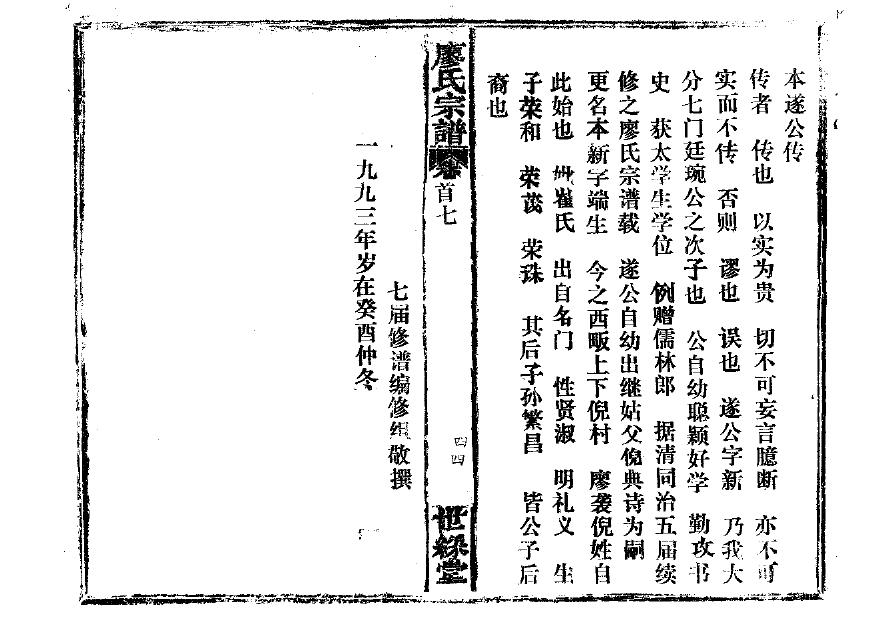 本遂公传
传者 传也 以实为贵 切不可妄言臆断 亦不可
实而不传 否则 谬也 误也 遂公字新 乃我大
分七门廷琬公之次子也 公自幼聪颖好学 勤攻书
史 获太学生学位 例赠儒林郎 据清同治五届续
修之廖氏宗谱载 遂公自幼出继姑父倪典诗为嗣
更名本新字端生 今之西畈上下倪村 廖袭倪姓自
此始也 妣崔氏 出自名门 性贤淑 明礼义 生
子荣和 荣茂 荣珠 其后子孙繁昌 皆公子后
裔也
廖氏宗譜
卷
首七
四四
世綵堂
七届修谱编修组敬撰
一九九三年岁在癸酉仲冬